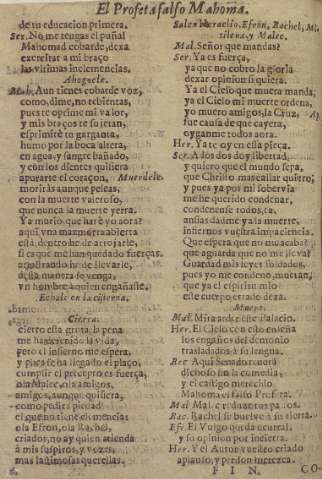 El Profeta falso Mahoma.
de tu educacion primera.
Ser. No me tengas el puñal
Mahomad cobarde, dexa
executar a mi braço
las vltimas inclemencias.
Ahoguele.
Mah. Aun tienes cobarde voz,
como, dime, no rebientas,
pues te oprime mi valor,
y mis braços te sujetan,
esprimirè tu garganta,
humo por la boca altera,
en agua, y sangre bañado,
y con los dientes quisiera
apurarte el coraçon, Muerdele.
moriràs aunque peleas,
con la muerte
que nunca la muerte yerra.
Ya murio, que harè yo aora?
aqui vna mazmorra abierta
està, dentro he de arrojarle,
si es que me han quedado fuerças.
arrastrando he de llevarle,
desta manera se venga,
vn hombre a quien engañaste.
Echale en la cisterna.
Cierta,
cierto esta gruta la pena
me ha
pero el infierno me espera,
y pues se ha llegado el plaço,
cumplir el precepto es fuerça,
ola Malec, ola amigos,
amigos, aunque quisiera
como pedir piedad
ola Efron, ola Rachel,
criados, no ay quien atienda
a mis suspiros, y vozes,
mas lastimosas querellas.
Salen Heraclio, Efron, Rachel, Mi
silena, y Malec.
Mal. Señor que mandas?
Ser. Ya es fuerça,
ya que no cobro la gloria
dexar opinion siquiera.
Ya el Cielo que muera manda;
ya el Cielo mi muerte ordena,
yo muero amigos, la Cruz
fue causa de que cayera,
oyganme todos aora.
Her. Ya te oy en essa pieça.
Ser. A los dos doy libertad,
y quiero que el mundo sepa,
que Christo
y pues ya por mi sobervia
me he querido condenar,
condenense todos, ea,
ansias dadme ya la muerte,
infiernos vuestra impaciencia.
Que espera que no me acaba?
que aguarda que no me lleva?
Guardad mis leyes soldados,
pues yo me condeno, mueran,
que ya el espiritu mio
este cuerpo elado dexa.
Muere.
Mal. Mira arde este Palacio.
Her. El Cielo con esto enseña
los engaños del demonio
trasladados a su lengua.
Rac. Aqui Senado
dichoso fin la comedia,
y el castigo merecido
Mahoma el falso Profeta.
Mal. Malec
Rac. Rachel se buelve a su tierra.
Efr. El Vulgo queda neutral,
y su opinion por incierta.
Her. Y el Autor vuestro criado
aplauso, y perdon merezca.
F I N. CO-